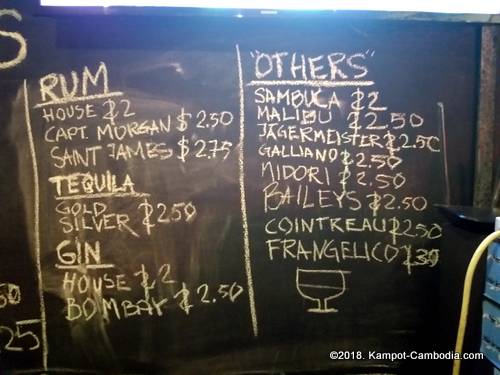 S
RUM
HOUSE $2
CAPT. MORGAN $2.50
SAINT JAMES $2.75
TEQUILA
GOLD
SILVER $2.50
GIN
HOUSE $2
BOMBAY $2.50
50
25
"OTHERS"
SAMBUCA $2
MALIBU $2.50
JÄGERMEISTER $2.50
GALLIANO $2.50
MIDORI $2.50
BAILEYS $2.50
COINTREAU $2.50
FRANGELICO
©2018. Kampot-Cambodia.com